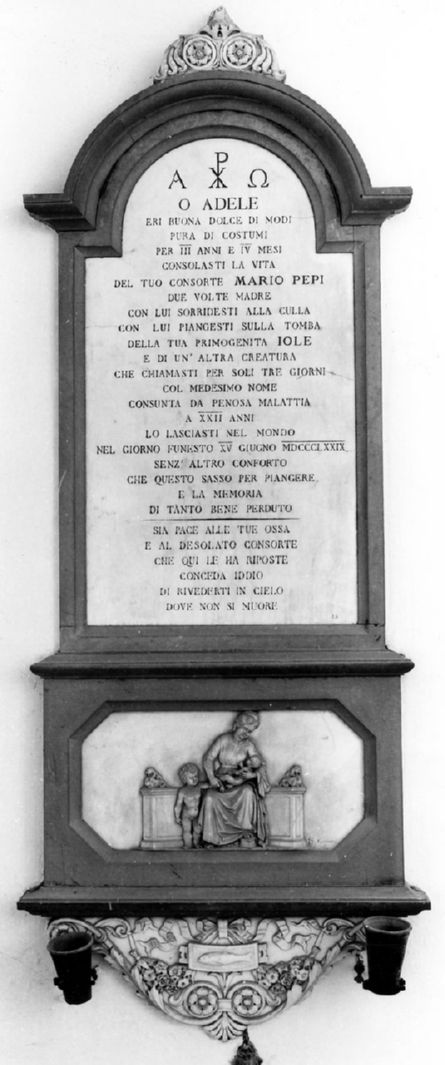 Α ☧ Ω
O ADELE
ERI BUONA DOLCE DI MODI
PURA DI COSTUMI
PER III ANNI E IV MESI
CONSOLASTI LA VITA
DEL TUO CONSORTE MARIO PEPI
DUE VOLTE MADRE
CON LUI SORRIDESTI ALLA CULLA
CON LUI PIANGESTI SULLA TOMBA
DELLA TUA PRIMOGENITA IOLE
E DI UN' ALTRA CREATURA
CHE CHIAMASTI PER SOLI TRE GIORNI
COL MEDESIMO NOME
CONSUNTA DA PENOSA MALATTIA
A XXII ANNI
LO LASCIASTI NEL MONDO
NEL GIORNO FUNESTO XV GIUGNO MDCCCLXXIX
SENZ' ALTRO CONFORTO
CHE QUESTO SASSO PER PIANGERE
E LA MEMORIA
DI TANTO BENE PERDUTO
SIA PACE ALLE TUE OSSA
E AL DESOLATO CONSORTE
CHE QUI LE HA RIPOSTE
CONCEDA IDDIO
DI RIVEDERTI IN CIELO
DOVE NON SI MUORE